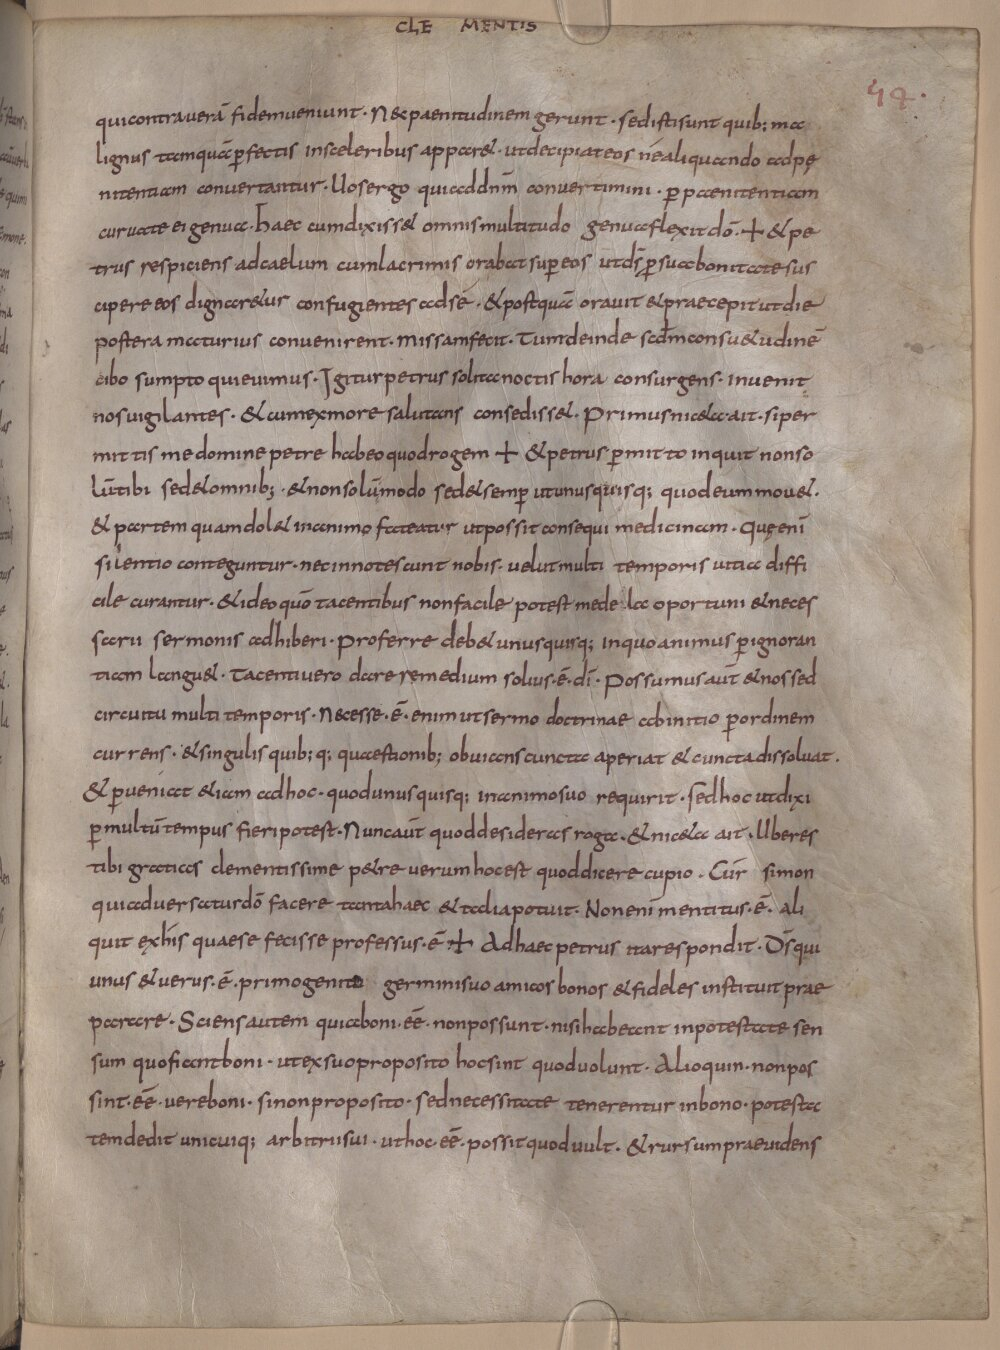 CLE MENTIS
54.
qui contra verā fidem veniunt · Nec paenitudinem gerunt · sed isti sunt quib; ma
lignus tamquā ꝑfectis in sceleribus apparet · ut decipiat eos ne aliquando ad pę
nitentiam convertantur · Uos ergo qui ad dnm̄ convertimini · ꝑ paenitentiam
curuate ei genua · haec cum dixisset omnis multitudo genua flexit dō · ✝ & pe
trus respiciens ad caelum cum lacrimis orabat suꝑ eos ut ds̄ ꝑ sua bonitate sus
cipere eos dignaretur confugientes ad sē · & postquā oravit & praecepit ut die
postera maturius convenirent · missam fecit · Tum deinde scd̄m consuetudinē
cibo sumpto quievimus · Igitur petrus solita noctis hora consurgens · invenit
nos vigilantes · & cum ex more salutans consedisset · Primus niceta ait · si per
mittis me domine petre habeo quod rogem ✝ & petrus ꝑmitto inquit non so
lū tibi sed & omnib; · & non solūmodo sed & semꝑ ut unusquisq; quod eum movet ·
& partem quam dolet in animo fateatur ut possit consequi medicinam · Quę enī
silentio conteguntur · nec innotescunt nobis · velut multi temporis vitia diffi
cile curantur · & ideo quō tacentibus non facile potest mede la oportuni & neces
sarii sermonis adhiberi · Proferre debet unusquisq; in quo animus ꝑ ignoran
tiam languet · Tacenti vero dare remedium solius · ē · dī · Possumus aut̄ & nos sed
circuitu multi temporis · Necesse · ē · enim ut sermo doctrinae ab initio ꝑ ordinem
currens · & singulis quib; q; quaestionib; obvians cuncta aperiat & cuncta dissolvat ·
& ꝑveniat etiam ad hoc · quod unusquisq; in animo suo requirit · sed hoc ut dixi
ꝑ multū tempus fieri potest · Nunc aut̄ quod desideras roga · & niceta ait · Uberes
tibi gratias clementissime petre verum hoc est quod dicere cupio · Cur simon
qui adversatur dō facere tanta haec & talia potuit · Non enī mentitus · ē · ali
quit ex his quaese fecisse professus · ē ✝ Ad haec petrus ita respondit · Ds̄ qui
unus & verus · ē · primogenito germini suo amicos bonos & fideles instituit prae
parare · Sciens autem quia boni · ēē · non possunt · nisi habeant in potestate sen
sum quo fiant boni · ut ex suo proposito hoc sint quod volunt · Alioquin · non pos
sint · ēē · vere boni · si non proposito · sed necessitate tenerentur in bono · potesta
tem dedit unicuiq; arbitrii sui · ut hoc · ēē · possit quod vult · & rursum praevidens